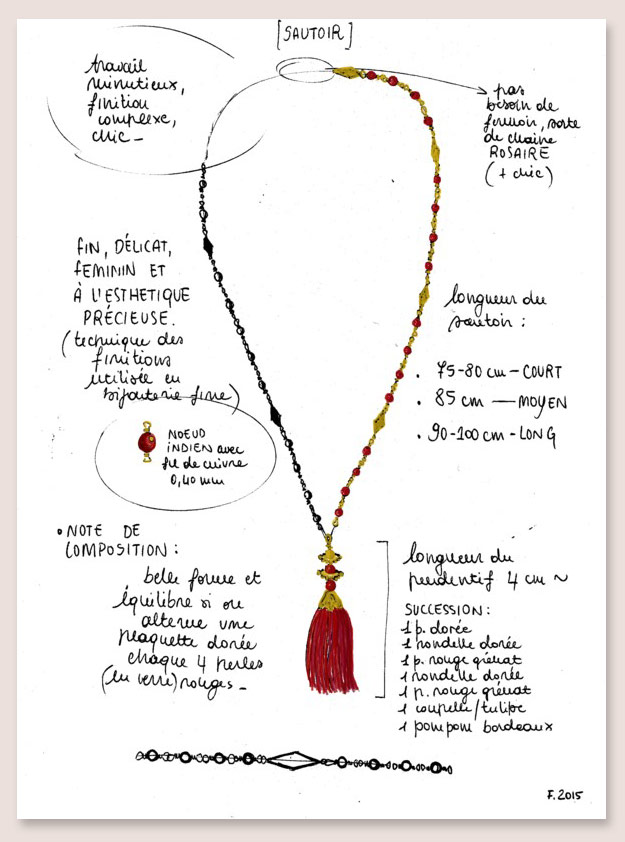 [SAUTOIR]
travail
minutieux,
finition
complexe,
chic -
pas
besoin de
fermoir, sorte
de chaine
ROSAIRE
(+ chic)
FIN, DÉLICAT,
FEMININ ET
À L'ESTHETIQUE
PRÉCIEUSE.
(technique des
finitions
utilisée en
bijouterie fine)
NOEUD
INDIEN avec
fil de cuivre
0,40 mm
longueur du
sautoir :
. 75-80 cm - COURT
. 85 cm — MOYEN
. 90-100 cm - LONG
• NOTE DE
COMPOSITION :
belle forme et
équilibre si on
alterne une
plaquette dorée
chaque 4 perles
(en verre) rouges -
longueur du
pendentif 4 cm ~
SUCCESSION:
1 p. dorée
1 rondelle dorée
1 p. rouge grénat
1 rondelle dorée
1 p. rouge grénat
1 coupelle/tulipe
1 pompom bordeaux
F. 2015